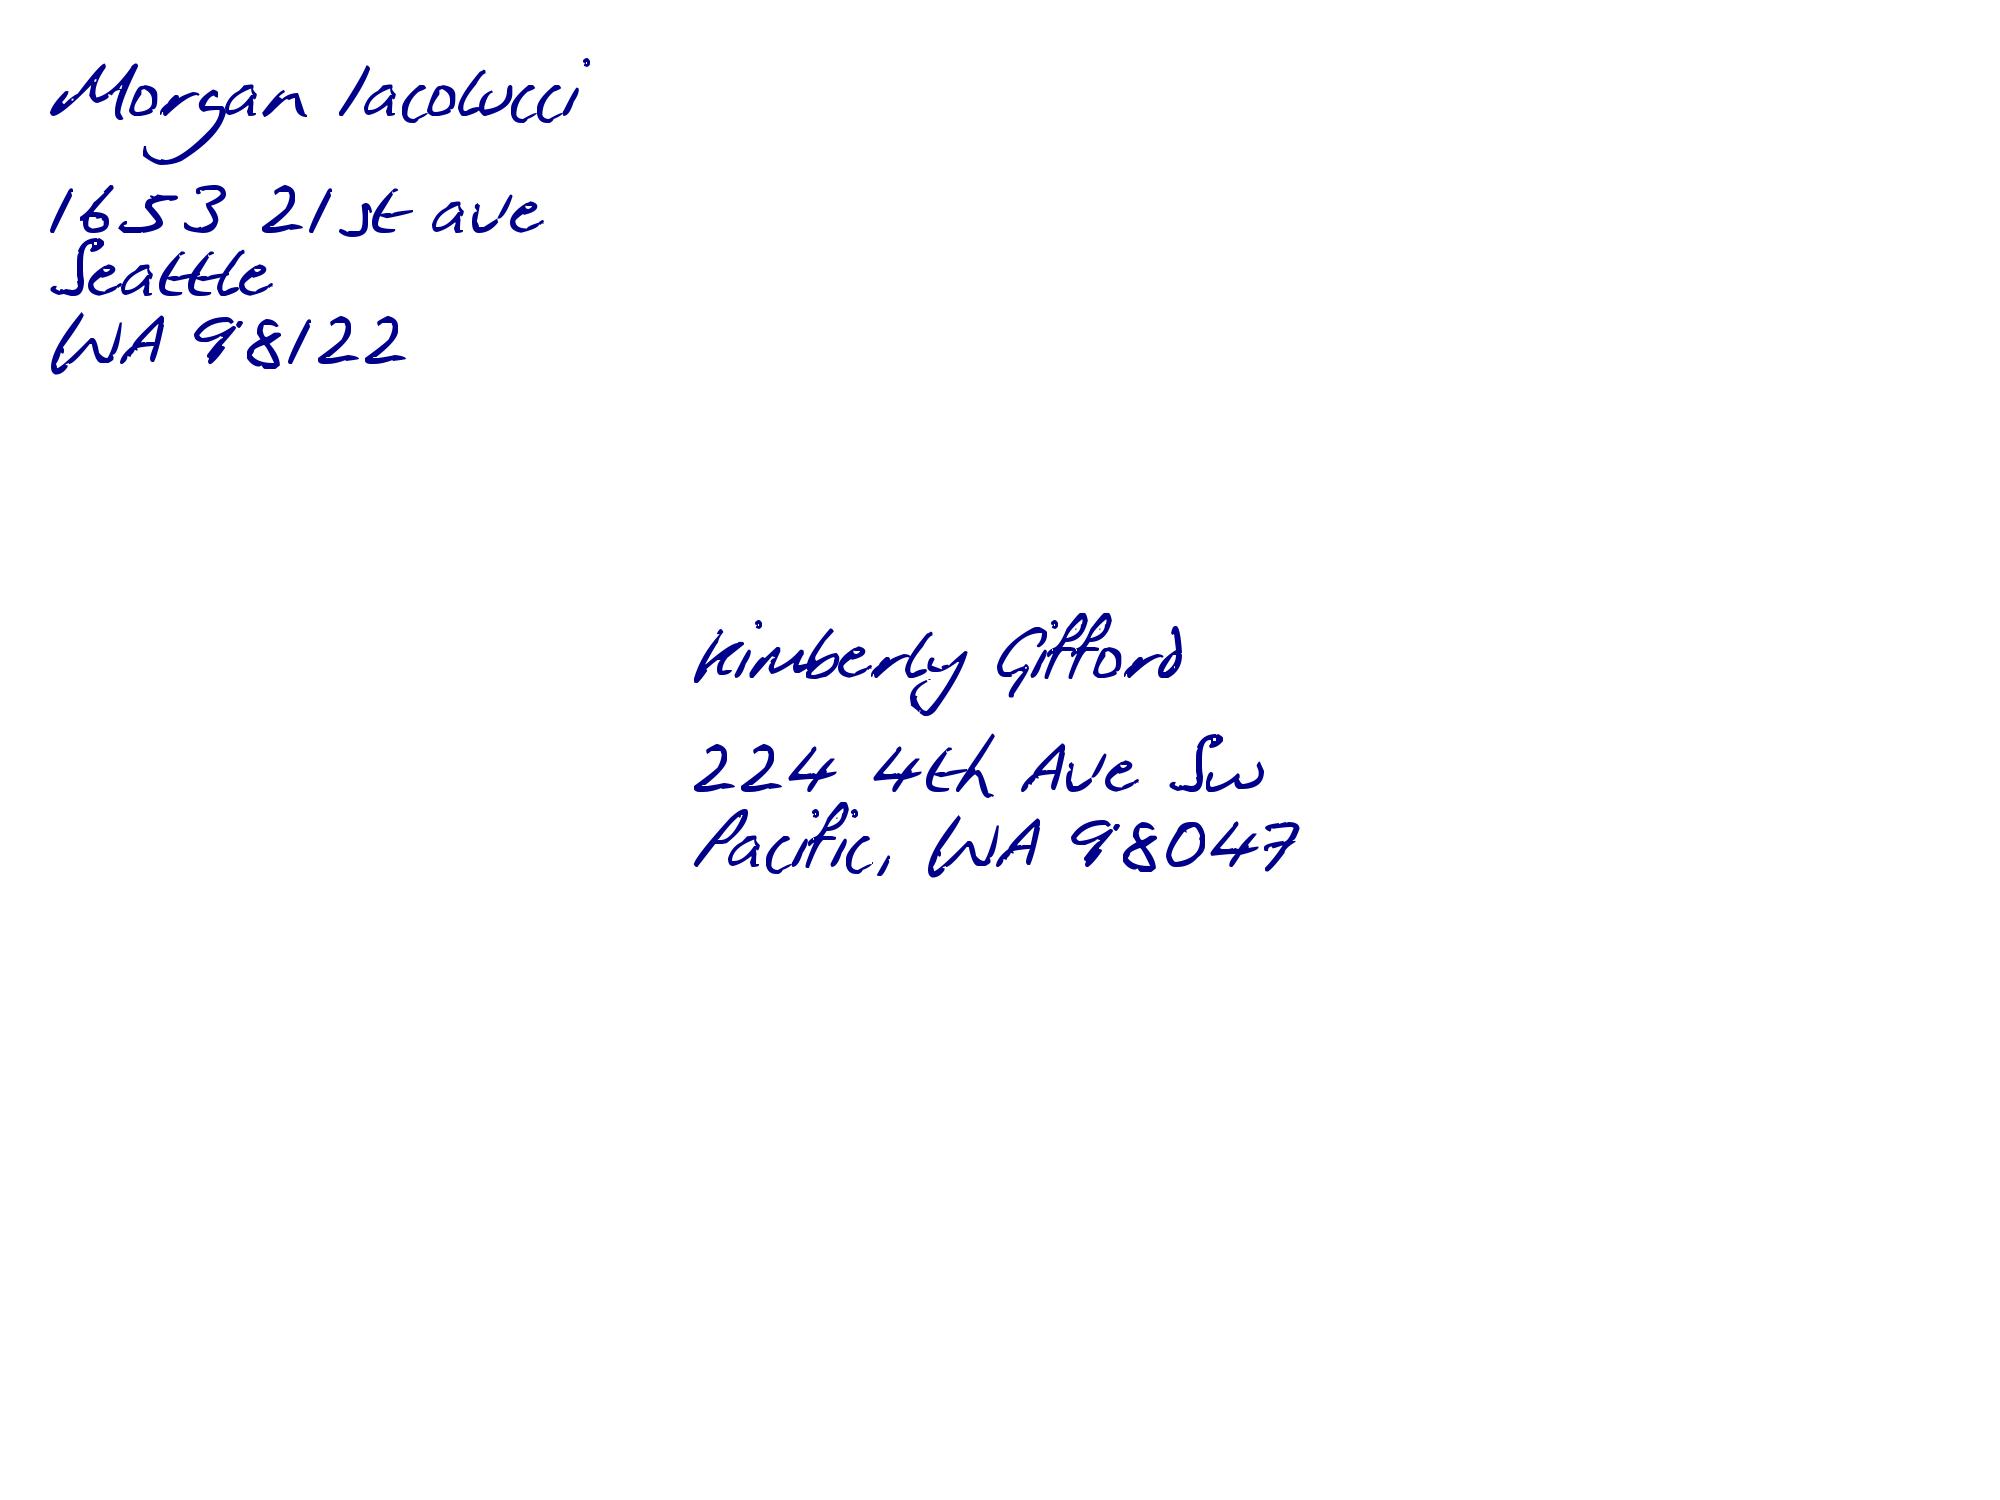 Morgan Iacolucci
1653 21st ave
Seattle
WA 98122
Kimberly Gifford
224 4th Ave Sw
Pacific, WA 98047